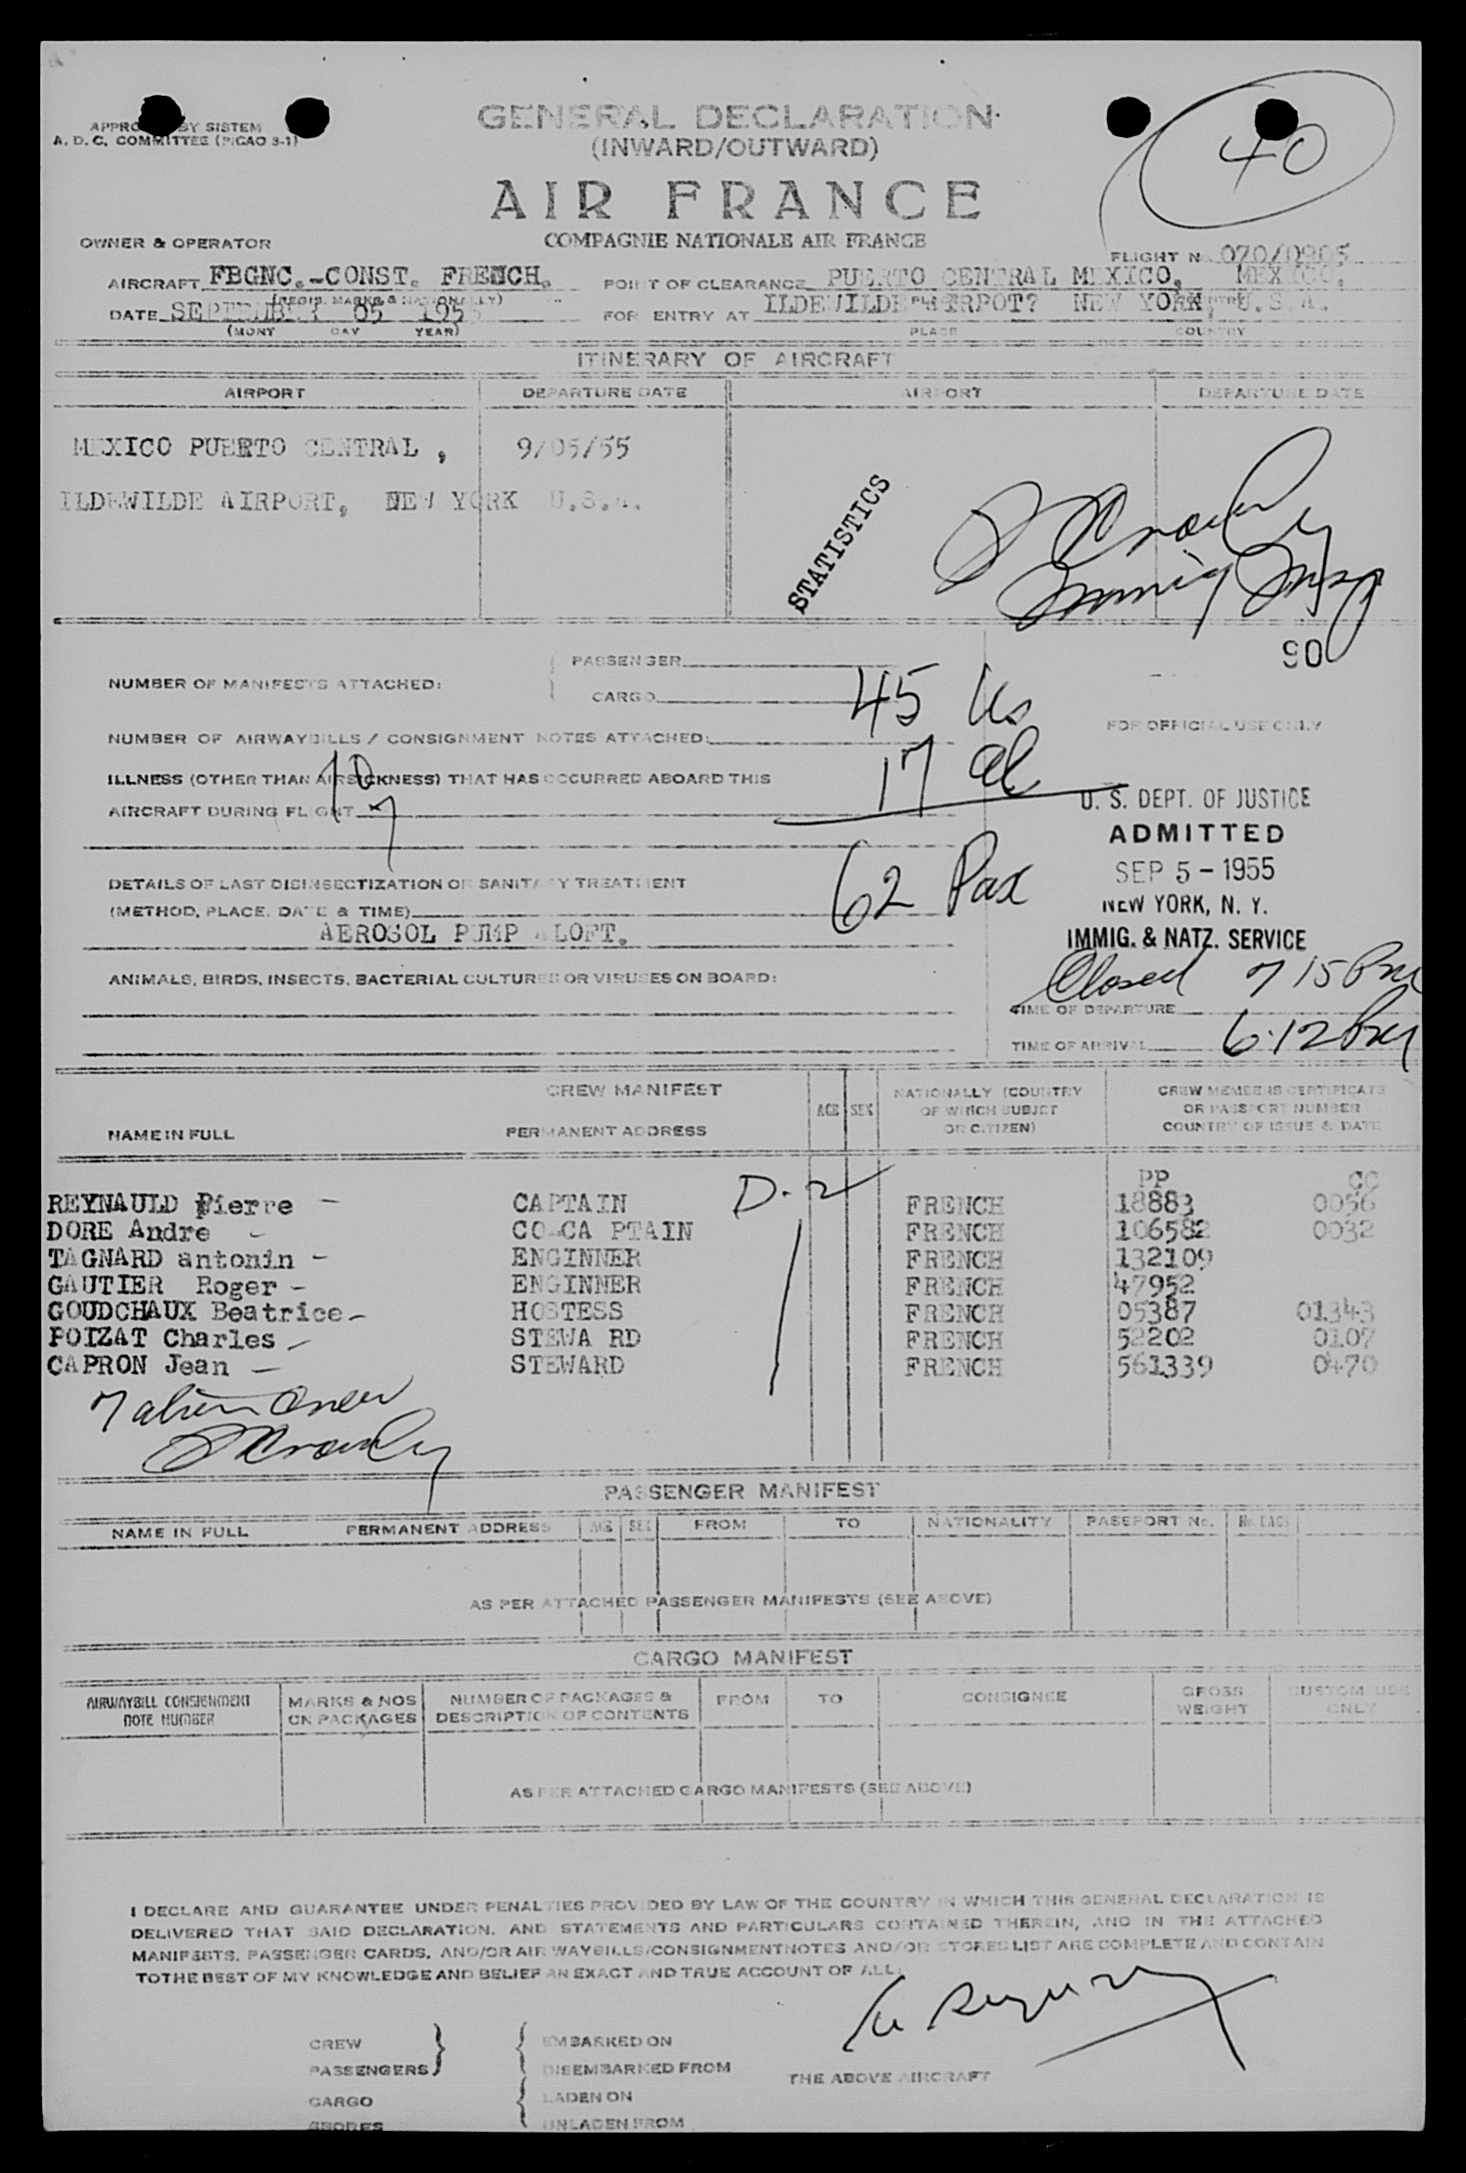 GENERAL DECLARATION
(INWARD/OUTWARD)
40
BY SISTEM
A. D. C. COMMITTEE (PICAO 3-1)
AIR FRANCE
COMPAGNIE NATIONALE AIR FRANCE
OWNER & OPERATOR
FLIGHT N 070/0905
AIRCRAFT FBGNC.-CONST. FRENCH.
(REGIS. MARKS & NATIONALLY)
POINT OF CLEARANCE PUERTO CENTRAL MEXICO, MEXICO,
DATE SEPTEMBER 05 1955
(MONY DAY YEAR)
FOR ENTRY AT ILDEWILDE AIRPOT? NEW YORK, U.S.A.
PLACE COUNTRY
ITINERARY OF AIRCRAFT
AIRPORT DEPARTURE DATE AIRPORT DEPARTURE DATE
MEXICO PUERTO CENTRAL , 9/05/55
ILDEWILDE AIRPORT, NEW YORK U.S.A.
STATISTICS
Immig Insp
90
NUMBER OF MANIFESTS ATTACHED:
PASSENGER
CARGO
45 Us
FOR OFFICIAL USE ONLY
NUMBER OF AIRWAYBILLS / CONSIGNMENT NOTES ATTACHED:
17 al
ILLNESS (OTHER THAN AIRSICKNESS) THAT HAS OCCURRED ABOARD THIS
AIRCRAFT DURING FLIGHT
62 Pax
U. S. DEPT. OF JUSTICE
ADMITTED
SEP 5 - 1955
NEW YORK, N. Y.
IMMIG. & NATZ. SERVICE
DETAILS OF LAST DISINSECTIZATION OR SANITARY TREATMENT
(METHOD, PLACE, DATE & TIME)
AEROSOL PUMP ALOFT.
ANIMALS, BIRDS, INSECTS, BACTERIAL CULTURES OR VIRUSES ON BOARD:
Closed 7 15 Pm
TIME OF DEPARTURE
TIME OF ARRIVAL 6:12 Pm
CREW MANIFEST
NAME IN FULL PERMANENT ADDRESS AGE SEX
NATIONALLY (COUNTRY
OF WHICH SUBJCT
OR CITIZEN)
CREW MEMBERS CERTIFICATE
OR PASSPORT NUMBER
COUNTRY OF ISSUE & DATE
D-2
PP CC
REYNAULD Pierre - CAPTAIN FRENCH 18883 0056
DORE Andre - CO-CA PTAIN FRENCH 106582 0032
TAGNARD antonin - ENGINNER FRENCH 132109
GAUTIER Roger - ENGINNER FRENCH 47952
GOUDCHAUX Beatrice - HOSTESS FRENCH 05387 01343
POIZAT Charles - STEWA RD FRENCH 52202 0107
CAPRON Jean - STEWARD FRENCH 561339 0470
7 alien crew
PASSENGER MANIFEST
NAME IN FULL PERMANENT ADDRESS AGE SEX FROM TO NATIONALITY PASSPORT No.
AS PER ATTACHED PASSENGER MANIFESTS (SEE ABOVE)
CARGO MANIFEST
AIRWAYBILL CONSIGNMENT
NOTE NUMBER
MARKS & NOS
ON PACKAGES
NUMBER OF PACKAGES &
DESCRIPTION OF CONTENTS
FROM TO CONSIGNEE
GROSS
WEIGHT
CUSTOM USE
ONLY
AS PER ATTACHED CARGO MANIFESTS (SEE ABOVE)
I DECLARE AND GUARANTEE UNDER PENALTIES PROVIDED BY LAW OF THE COUNTRY IN WHICH THIS GENERAL DECLARATION IS
DELIVERED THAT SAID DECLARATION, AND STATEMENTS AND PARTICULARS CONTAINED THEREIN, AND IN THE ATTACHED
MANIFESTS, PASSENGER CARDS, AND/OR AIR WAYBILLS/CONSIGNMENTNOTES AND/OR STORES LIST ARE COMPLETE AND CONTAIN
TOTHE BEST OF MY KNOWLEDGE AND BELIEF AN EXACT AND TRUE ACCOUNT OF ALL:
CREW
PASSENGERS
EMBARKED ON
DISEMBARKED FROM
THE ABOVE AIRCRAFT
CARGO
LADEN ON
UNLADEN FROM